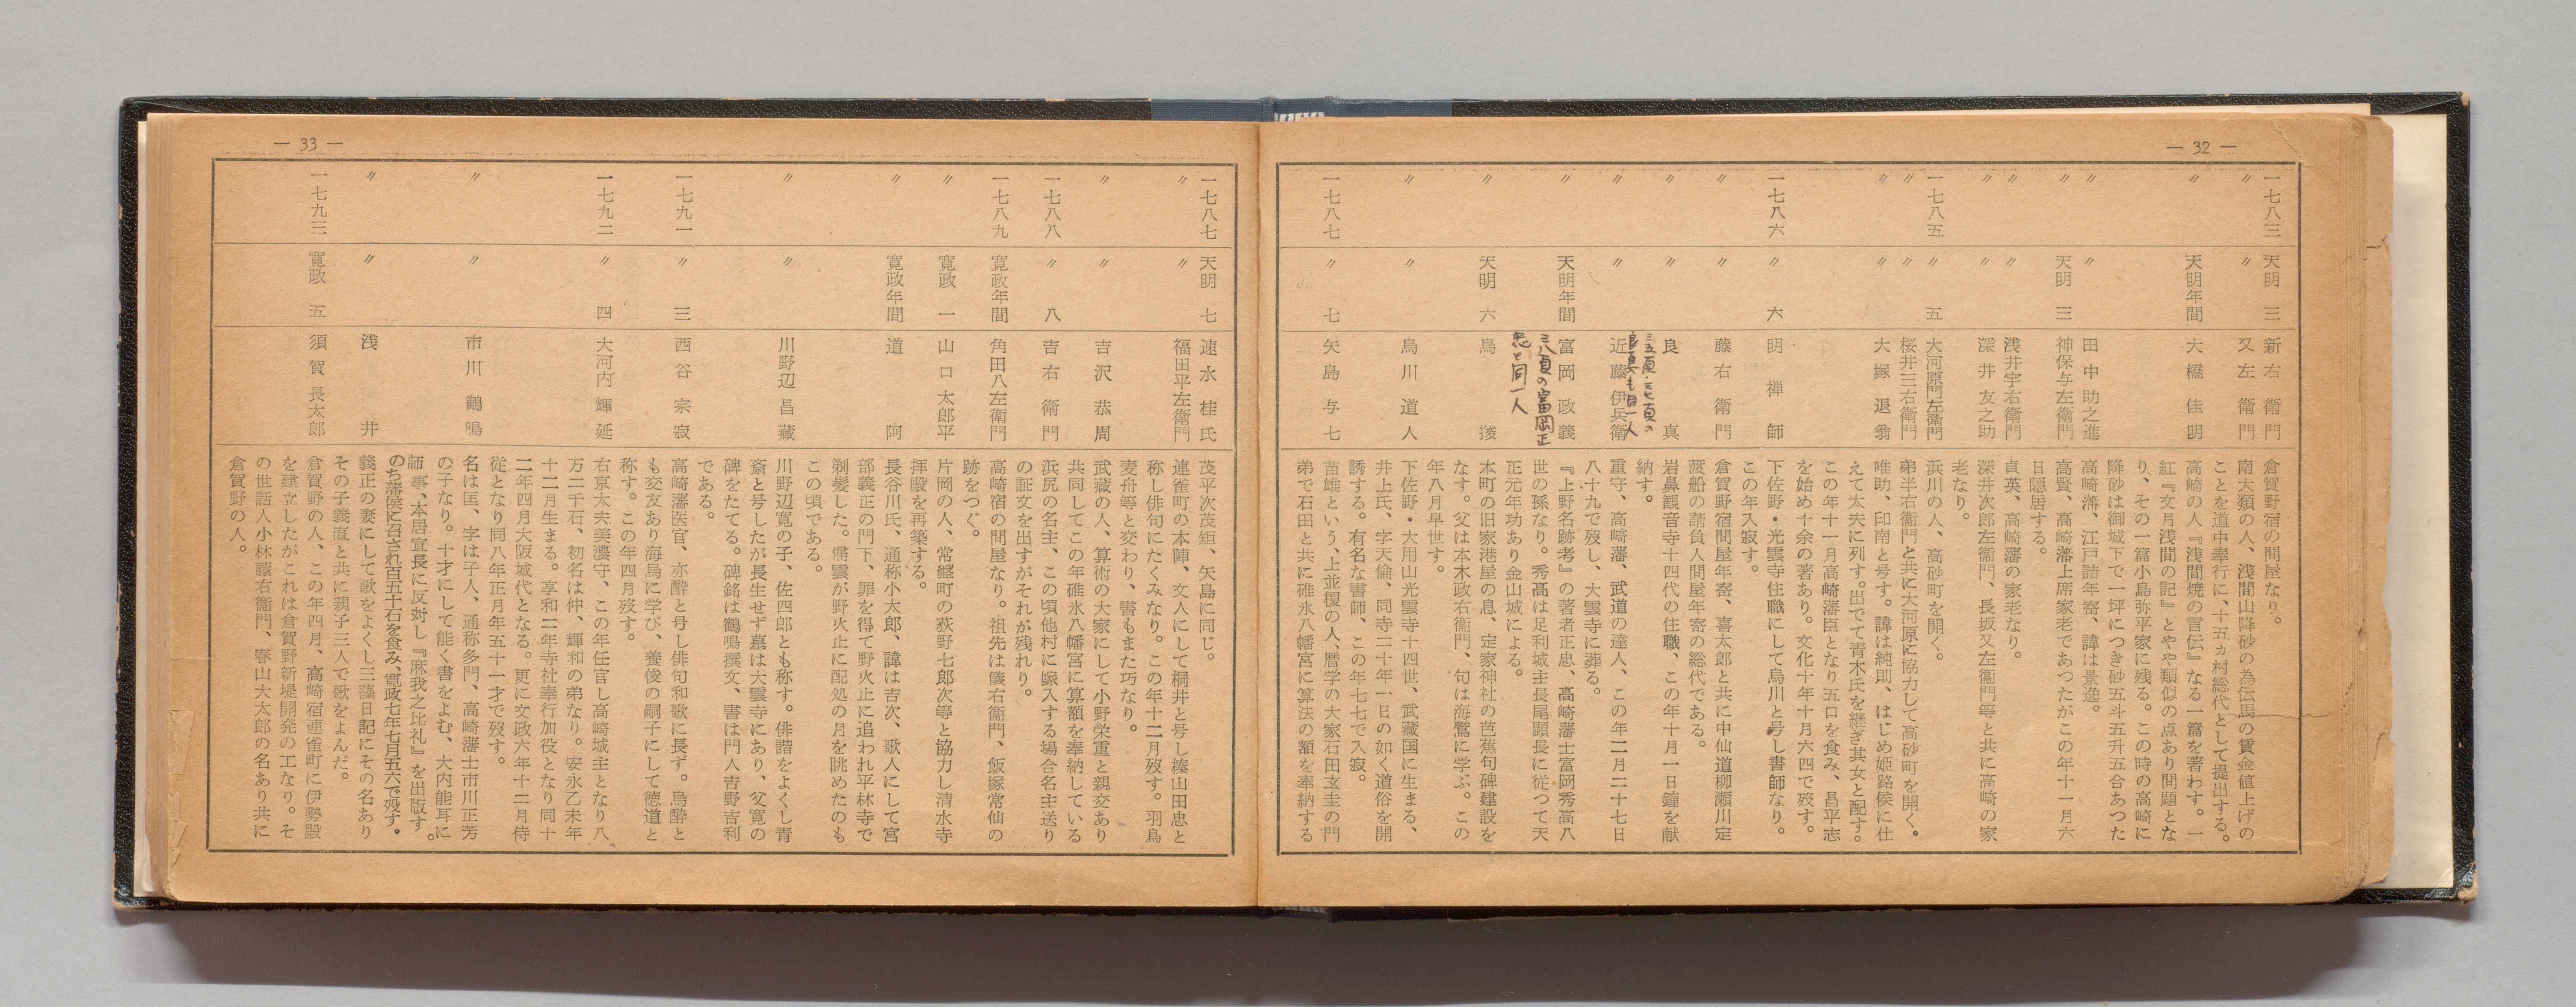 — 32 —
一七八三 天明 三 新右衛門 倉賀野宿の問屋なり。
〃 〃 又左衛門 南大類の人、浅間山降砂の為伝馬の賃金値上げの
ことを道中奉行に、十五ヵ村総代として提出する。
〃 天明年間 大橋佳明 高崎の人『浅間焼の言伝』なる一篇を著わす。一
紅『文月浅間の記』とやや類似の点あり問題とな
り、その一篇小島弥平家に残る。この時の高崎に
降砂は御城下で一坪につき砂五斗五升五合あつた
〃 〃 田中助之進 高崎藩、江戸詰年寄、諱は景逸。
〃 天明 三 神保与左衛門 高賢、高崎藩上席家老であつたがこの年十一月六
日隠居する。
〃 〃 浅井宇右衛門 貞英、高崎藩の家老なり。
〃 〃 深井友之助 深井次郎左衛門、長坂又左衛門等と共に高崎の家
老なり。
一七八五 〃 五 大河原門左衛門 浜川の人、高砂町を開く。
〃 〃 桜井三右衛門 弟半右衛門と共に大河原に協力して高砂町を開く。
〃 〃 大塚退翁 唯助、印南と号す。諱は純則、はじめ姫路侯に仕
えて太夫に列す。出でて青木氏を継ぎ其女と配す。
この年十一月高崎藩臣となり五口を食み、昌平志
を始め十余の著あり。文化十年十月六四で歿す。
一七八六 〃 六 明禅師 下佐野・光雲寺住職にして烏川と号し書師なり。
この年入寂す。
〃 〃 藤右衛門 倉賀野宿問屋年寄、喜太郎と共に中仙道柳瀬川定
渡船の請負人問屋年寄の総代である。
〃 〃 良真 岩鼻観音寺十四代の住職、この年十月一日鐘を献
納す。
三五頁・三七頁の
良真も同一人
〃 〃 近藤伊兵衛 重守、高崎藩、武道の達人、この年二月二十七日
八十九で歿し、大雲寺に葬る。
〃 天明年間 富岡政義 『上野名跡考』の著者正忠、高崎藩士富岡秀高八
世の孫なり。秀高は足利城主長尾顕長に従つて天
正元年功あり金山城による。
三八頁の富岡正
忠と同一人
〃 天明 六 烏揆 本町の旧家港屋の息、定家神社の芭蕉句碑建設を
なす。父は本木政右衛門、句は海鷲に学ぶ。この
年八月早世す。
〃 〃 烏川道人 下佐野・大用山光雲寺十四世、武蔵国に生まる、
井上氏、字天倫、同寺二十年一日の如く道俗を開
誘する。有名な書師、この年七七で入寂。
一七八七 〃 七 矢島与七 苗雄という、上並榎の人、暦学の大家石田玄圭の門
弟で石田と共に碓氷八幡宮に算法の額を奉納する
— 33 —
一七八七 天明 七 速水桂氏 茂平次茂矩、矢島に同じ。
〃 〃 福田平左衛門 連雀町の本陣、文人にして桐井と号し榛山田忠と
称し俳句にたくみなり。この年十二月歿す。羽鳥
麦舟等と交わり、書もまた巧なり。
〃 〃 吉沢恭周 武蔵の人、算術の大家にして小野栄重と親交あり
共同してこの年碓氷八幡宮に算額を奉納している
一七八八 〃 八 吉右衛門 浜尻の名主、この頃他村に嫁入する場合名主送り
の証文を出すがそれが残れり。
一七八九 寛政年間 角田八左衛門 高崎宿の問屋なり。祖先は儀右衛門、飯塚常仙の
跡をつぐ。
〃 寛政 一 山口太郎平 片岡の人、常盤町の荻野七郎次等と協力し清水寺
拝殿を再築する。
〃 寛政年間 道阿 長谷川氏、通称小太郎、諱は吉次、歌人にして宮
部義正の門下、罪を得て野火止に追われ平林寺で
剃髪した。滞雲が野火止に配処の月を眺めたのも
この頃である。
〃 〃 川野辺昌蔵 川野辺寛の子、佐四郎とも称す。俳諧をよくし青
斎と号したが長生せず墓は大雲寺にあり、父寛の
碑をたてる。碑銘は鶴鳴撰文、書は門人吉野吉利
である。
一七九一 〃 三 西谷宗寂 高崎藩医官、亦酔と号し俳句和歌に長ず。烏酔と
も交友あり海鳥に学び、養俊の嗣子にして徳道と
称す。この年四月歿す。
一七九二 〃 四 大河内輝延 右京太夫美濃守、この年任官し高崎城主となり八
万二千石、初名は仲、輝和の弟なり。安永乙未年
十二月生まる。享和二年寺社奉行加役となり同十
二年四月大阪城代となる。更に文政六年十二月侍
従となり同八年正月年五十一才で歿す。
〃 〃 市川鶴鳴 名は匡、字は子人、通称多門、高崎藩士市川正芳
の子なり。十才にして能く書をよむ、大内能耳に
師事、本居宣長に反対し『麻我之比礼』を出版す。
のち藩侯に召され百五十石を食み、寛政七年七月五六で歿す。
〃 〃 浅井 義正の妻にして歌をよくし三藻日記にその名あり
その子義直と共に親子三人で歌をよんだ。
一七九三 寛政 五 須賀長太郎 倉賀野の人、この年四月、高崎宿連雀町に伊勢殿
を建立したがこれは倉賀野新堤開発の工なり。そ
の世話人小林藤右衛門、春山大太郎の名あり共に
倉賀野の人。